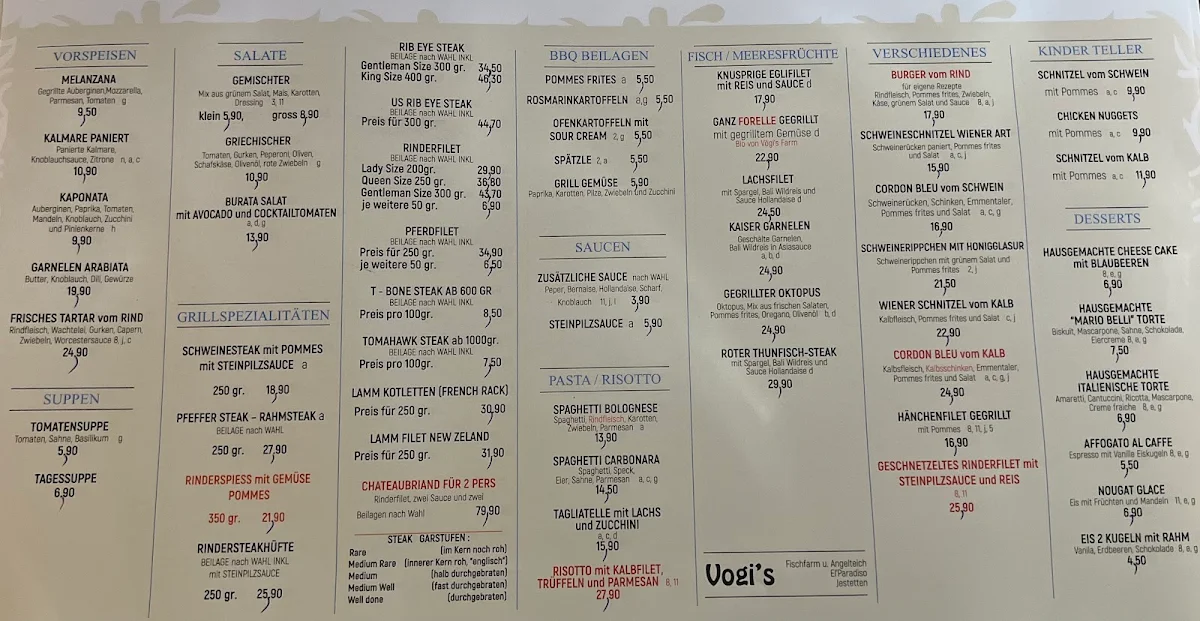 VORSPEISEN
MELANZANA
Gegrillte Auberginen,Mozzarella,
Parmesan, Tomaten g
9,50
KALMARE PANIERT
Panierte Kalmare,
Knoblauchsauce, Zitrone n, a, c
10,90
KAPONATA
Auberginen, Paprika, Tomaten,
Mandeln, Knoblauch, Zucchini
und Pinienkerne h
9,90
GARNELEN ARABIATA
Butter, Knoblauch, Dill, Gewürze
19,90
FRISCHES TARTAR vom RIND
Rindfleisch, Wachtelei, Gurken, Capern,
Zwiebeln, Worcestersauce 8, j, c
24,90
SUPPEN
TOMATENSUPPE
Tomaten, Sahne, Basilikum g
5,90
TAGESSUPPE
6,90
SALATE
GEMISCHTER
Mix aus grünem Salat, Mais, Karotten,
Dressing 3, 11
klein 5,90, gross 8,90
GRIECHISCHER
Tomaten, Gurken, Peperoni, Oliven,
Schafskäse, Olivenöl, rote Zwiebeln g
10,90
BURATA SALAT
mit AVOCADO und COCKTAILTOMATEN
a, d, g
13,90
GRILLSPEZIALITÄTEN
SCHWEINESTEAK mit POMMES
mit STEINPILZSAUCE a
250 gr. 18,90
PFEFFER STEAK – RAHMSTEAK a
BEILAGE nach WAHL
250 gr. 27,90
RINDERSPIESS mit GEMÜSE
POMMES
350 gr. 21,90
RINDERSTEAKHÜFTE
BEILAGE nach WAHL INKL
mit STEINPILZSAUCE
250 gr. 25,90
RIB EYE STEAK
BEILAGE nach WAHL INKL
Gentleman Size 300 gr. 34,50
King Size 400 gr. 46,30
US RIB EYE STEAK
BEILAGE nach WAHL INKL
Preis für 300 gr. 44,70
RINDERFILET
BEILAGE nach WAHL INKL
Lady Size 200gr. 29,90
Queen Size 250 gr. 36,80
Gentleman Size 300 gr. 43,70
je weitere 50 gr. 6,90
PFERDFILET
BEILAGE nach WAHL INKL
Preis für 250 gr. 34,90
je weitere 50 gr. 6,50
T - BONE STEAK AB 600 GR
BEILAGE nach WAHL INKL
Preis pro 100gr. 8,50
TOMAHAWK STEAK ab 1000gr.
BEILAGE nach WAHL INKL
Preis pro 100gr. 7,50
LAMM KOTLETTEN (FRENCH RACK)
Preis für 250 gr. 30,90
LAMM FILET NEW ZELAND
Preis für 250 gr. 31,90
CHATEAUBRIAND FÜR 2 PERS
Rinderfilet, zwei Sauce und zwei
Beilagen nach Wahl 79,90
STEAK GARSTUFEN :
Rare (im Kern noch roh)
Medium Rare (innerer Kern roh, "englisch")
Medium (halb durchgebraten)
Medium Well (fast durchgebraten)
Well done (durchgebraten)
BBQ BEILAGEN
POMMES FRITES a 5,50
ROSMARINKARTOFFELN a,g 5,50
OFENKARTOFFELN mit
SOUR CREAM 2, g 5,50
SPÄTZLE 2, a 5,50
GRILL GEMÜSE 5,90
Paprika, Karotten, Pilze, Zwiebeln und Zucchini
SAUCEN
ZUSÄTZLICHE SAUCE nach WAHL
Peper, Bernaise, Hollandaise, Scharf,
Knoblauch 11, j, l 3,90
STEINPILZSAUCE a 5,90
PASTA / RISOTTO
SPAGHETTI BOLOGNESE
Spaghetti, Rindfleisch, Karotten,
Zwiebeln, Parmesan a
13,90
SPAGHETTI CARBONARA
Spaghetti, Speck,
Eier, Sahne, Parmesan a, c, g
14,50
TAGLIATELLE mit LACHS
und ZUCCHINI
a, c, d
15,90
RISOTTO mit KALBFILET,
TRÜFFELN und PARMESAN 8, 11
27,90
FISCH / MEERESFRÜCHTE
KNUSPRIGE EGLIFILET
mit REIS und SAUCE d
17,90
GANZ FORELLE GEGRILLT
mit gegrilltem Gemüse d
Bio von Vögi's Farm
22,90
LACHSFILET
mit Spargel, Ball Wildreis und
Sauce Hollandaise d
24,50
KAISER GARNELEN
Geschälte Garnelen,
Ball Wildreis in Asiasauce
a, b, d
24,90
GEGRILLTER OKTOPUS
Oktopus, Mix aus frischen Salaten,
Pommes frites, Oregano, Olivenöl b, d
24,90
ROTER THUNFISCH-STEAK
mit Spargel, Ball Wildreis und
Sauce Hollandaise d
29,90
Vogi's
Fischfarm u. Angelteich
El'Paradiso
Jestetten
VERSCHIEDENES
BURGER vom RIND
für eigene Rezepte
Rindfleisch, Pommes frites, Zwiebeln,
Käse, grünem Salat und Sauce 8, a, j
17,90
SCHWEINESCHNITZEL WIENER ART
Schweinerücken paniert, Pommes frites
und Salat a, c, j
15,90
CORDON BLEU vom SCHWEIN
Schweinerücken, Schinken, Emmentaler,
Pommes frites und Salat a, c, g
16,90
SCHWEINERIPPCHEN MIT HONIGGLASUR
Schweinerippchen mit grünem Salat und
Pommes frites 2, j
21,50
WIENER SCHNITZEL vom KALB
Kalbfleisch, Pommes frites und Salat c, j
22,90
CORDON BLEU vom KALB
Kalbsfleisch, Kalbsschinken, Emmentaler,
Pommes frites und Salat a, c, g, j
24,90
HÄNCHENFILET GEGRILLT
mit Pommes 8, 11, j, 5
16,90
GESCHNETZELTES RINDERFILET mit
STEINPILZSAUCE und REIS
8, 11
25,90
KINDER TELLER
SCHNITZEL vom SCHWEIN
mit Pommes a, c 9,90
CHICKEN NUGGETS
mit Pommes a, c 9,90
SCHNITZEL vom KALB
mit Pommes a, c 11,90
DESSERTS
HAUSGEMACHTE CHEESE CAKE
mit BLAUBEEREN
8, e, g
6,90
HAUSGEMACHTE
"MARIO BELLI" TORTE
Biskuit, Mascarpone, Sahne, Schokolade,
Eiercreme 8, e, g
7,50
HAUSGEMACHTE
ITALIENISCHE TORTE
Amaretti, Cantuccini, Ricotta, Mascarpone,
Creme fraiche 8, e, g
6,90
AFFOGATO AL CAFFE
Espresso mit Vanille Eiskugeln 8, e, g
5,50
NOUGAT GLACE
Eis mit Früchten und Mandeln 11, e, g
6,90
EIS 2 KUGELN mit RAHM
Vanila, Erdbeeren, Schokolade 8, e, g
4,50